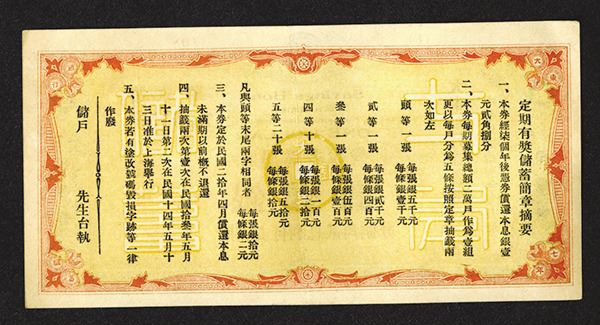 定期有獎儲蓄簡章摘要
一、本券經柒個年後憑券償還本息銀壹
元貳角捌分
二、本券每期募集總額二萬戶作為壹組
更以每戶分為五條按照定章抽籤兩
次如左
頭等一張 每張銀五千元 每條銀壹千元
貳等一張 每張銀貳千元 每條銀四百元
叁等一張 每張銀伍百元 每條銀壹百元
四等十張 每張銀一百元 每條銀二十元
五等二十張 每張銀五拾元 每條銀拾元
凡與頭等末尾兩字相同者 每張銀拾元 每條銀二元
三、本券定於民國二拾年四月償還本息
未滿期以前概不退還
四、抽籤兩次第壹次在民國拾叁年五月
十一日第二次在民國十四年五月十
三日准於上海舉行
五、本券若有塗改號碼毀損字跡等一律
作廢
儲戶 先生台執